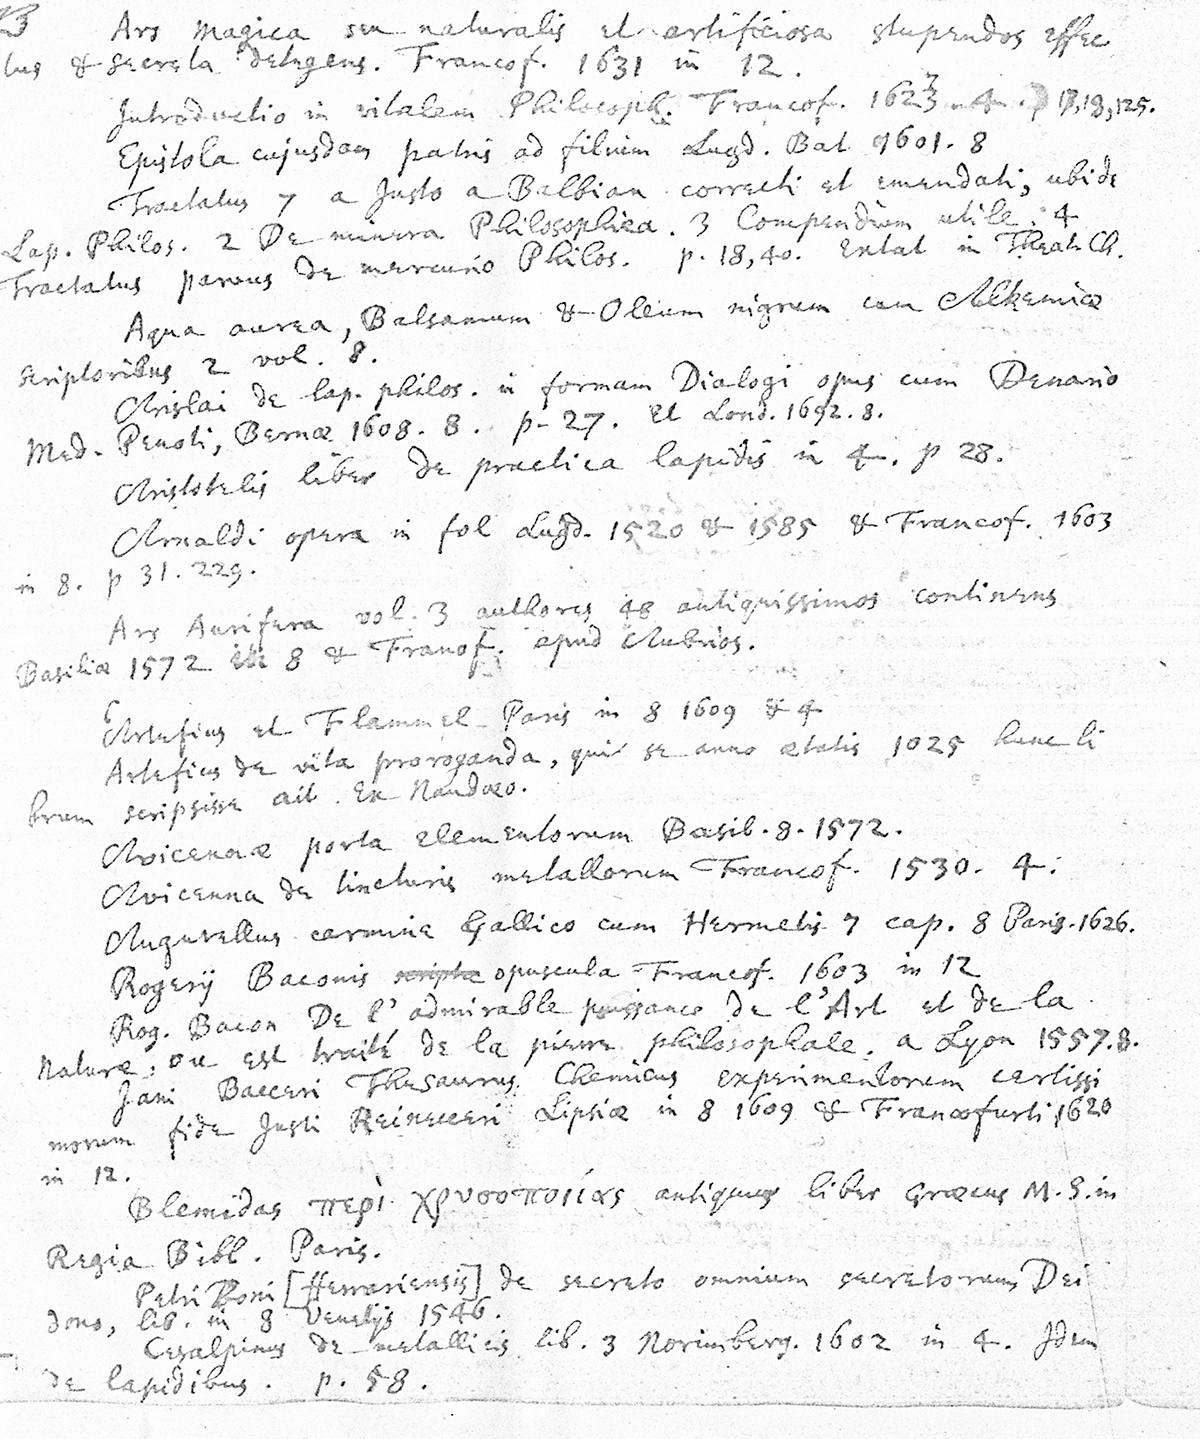 Ars Magica seu naturalis et artificiosa stupendos effec
tus & secreta detegens. Francof. 1631 in 12.
Introductio in vitalem Philosoph. Francof. 1623 4. p 17,18,125.
Epistola cujusdam patris ad filium Lugd. Bat 1601. 8
Tractatus 7 a Justo a Balbian correcti et emendati, ubi de
Lap. Philos. 2 De minera Philosophica. 3 Compendium utile. 4
Tractatus parvus de mercurio Philos. p. 18,40. Extat in Theatr. Ch.
Aqua aurea, Balsamum & Oleum nigrum cum Alkemiæ
scriptoribus 2 vol. 8.
Arislai de lap. philos. in formam Dialogi opus cum Denario
Med. Penoti, Bernæ 1608. 8. p. 27. Et Lond. 1692. 8.
Aristotelis liber de practica lapidis in 4. p 28.
Arnaldi opera in fol Lugd. 1520 & 1585 & Francof. 1603
in 8. p 31. 229.
Ars Aurifera vol. 3 authores 48 antiquissimos continens
Basiliæ 1572 in 8 & Francof. apud Aubrios.
Artefius et Flammel Paris in 8 1609 & 4
Artefius de vita proroganda, qui se anno ætatis 1025 hunc li
brum scripsisse ait. Ex Naudæo.
Avicennæ porta elementorum Basil. 8. 1572.
Avicenna de tincturis metallorum Francof. 1530. 4.
Augurellus carmine Gallico cum Hermetis 7 cap. 8 Paris. 1626.
Rogerij Baconis scripta opuscula Francof. 1603 in 12
Rog. Bacon De l'admirable puissance de l'Art et de la
Nature, ou est traité de la pierre philosophale. a Lyon 1557. 8.
Jani Bacceri Thesaurus Chemicus experimentorum certissi
morum fide Justi Reinecceri Lipsiæ in 8 1609 & Francofurti 1620
in 12.
Blemidas περὶ χρυσοποιίας antiquus liber Græcus M.S. in
Regia Bibl. Paris.
Petri Boni [fferrariensis] de secreto omnium secretorum Dei
dono, lib. in 8 Venetijs 1546.
Cesalpinus de metallicis lib. 3 Norimberg. 1602 in 4. Idem
de lapidibus. p. 58.